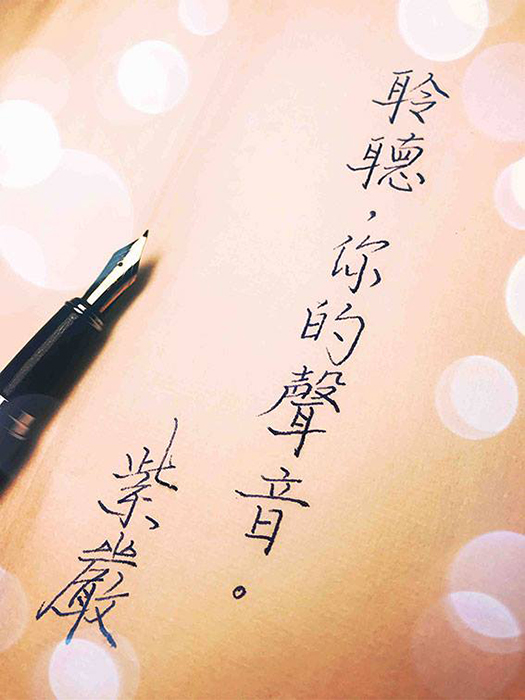 聆聽，你的聲音。
紫嚴